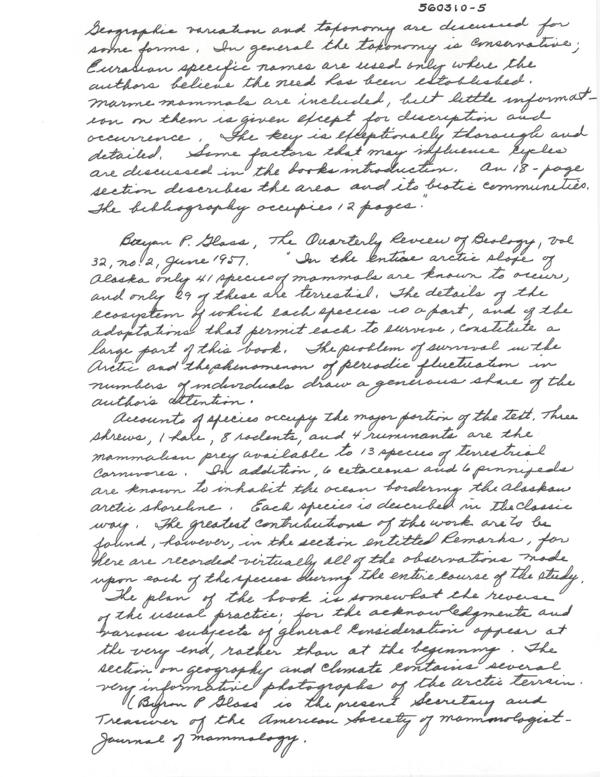 560310-5
Geographic variation and taxonomy are discussed for
some forms. In general the taxonomy is conservative;
Eurasian specific names are used only where the
authors believe the need has been established.
Marine mammals are included, but little informat-
ion on them is given except for discription and
occurrence. The key is exceptionally thorough and
detailed. Some factors that may influence cycles
are discussed in the books introduction. An 18-page
section describes the area and its biotic communities.
The bibliography occupies 12 pages."
Bryan P. Glass, The Quarterly Review of Biology, vol
32, no. 2, June 1957. "In the entire arctic slope of
Alaska only 41 species of mammals are known to occur,
and only 29 of these are terrestial. The details of the
ecosystem of which each species is a part, and of the
adaptations that permit each to survive, constitute a
large part of this book. The problem of survival in the
Arctic and the phenomenon of periodic fluctuation in
numbers of individuals draw a generous share of the
author's attention.
Accounts of species occupy the major portion of the text. Three
shrews, 1 hare, 8 rodents, and 4 ruminants are the
mammalian prey available to 13 species of terrestrial
Carnivores. In addition, 6 cetaceans and 6 pinnipeds
are known to inhabit the ocean bordering the Alaskan
arctic shoreline. Each species is described in the classic
way. The greatest contributions of the work are to be
found, however, in the section entitled Remarks, for
here are recorded virtually all of the observations made
upon each of the species during the entire course of the study.
The plan of the book is somewhat the reverse
of the usual practice; for the acknowledgments and
various subjects of general consideration appear at
the very end, rather than at the beginning. The
section on geography and climate contains several
very informative photographs of the arctic terrain.
(Byron P Glass is the present Secretary and
Treasurer of the American Society of mammologist-
Journal of mammalogy.